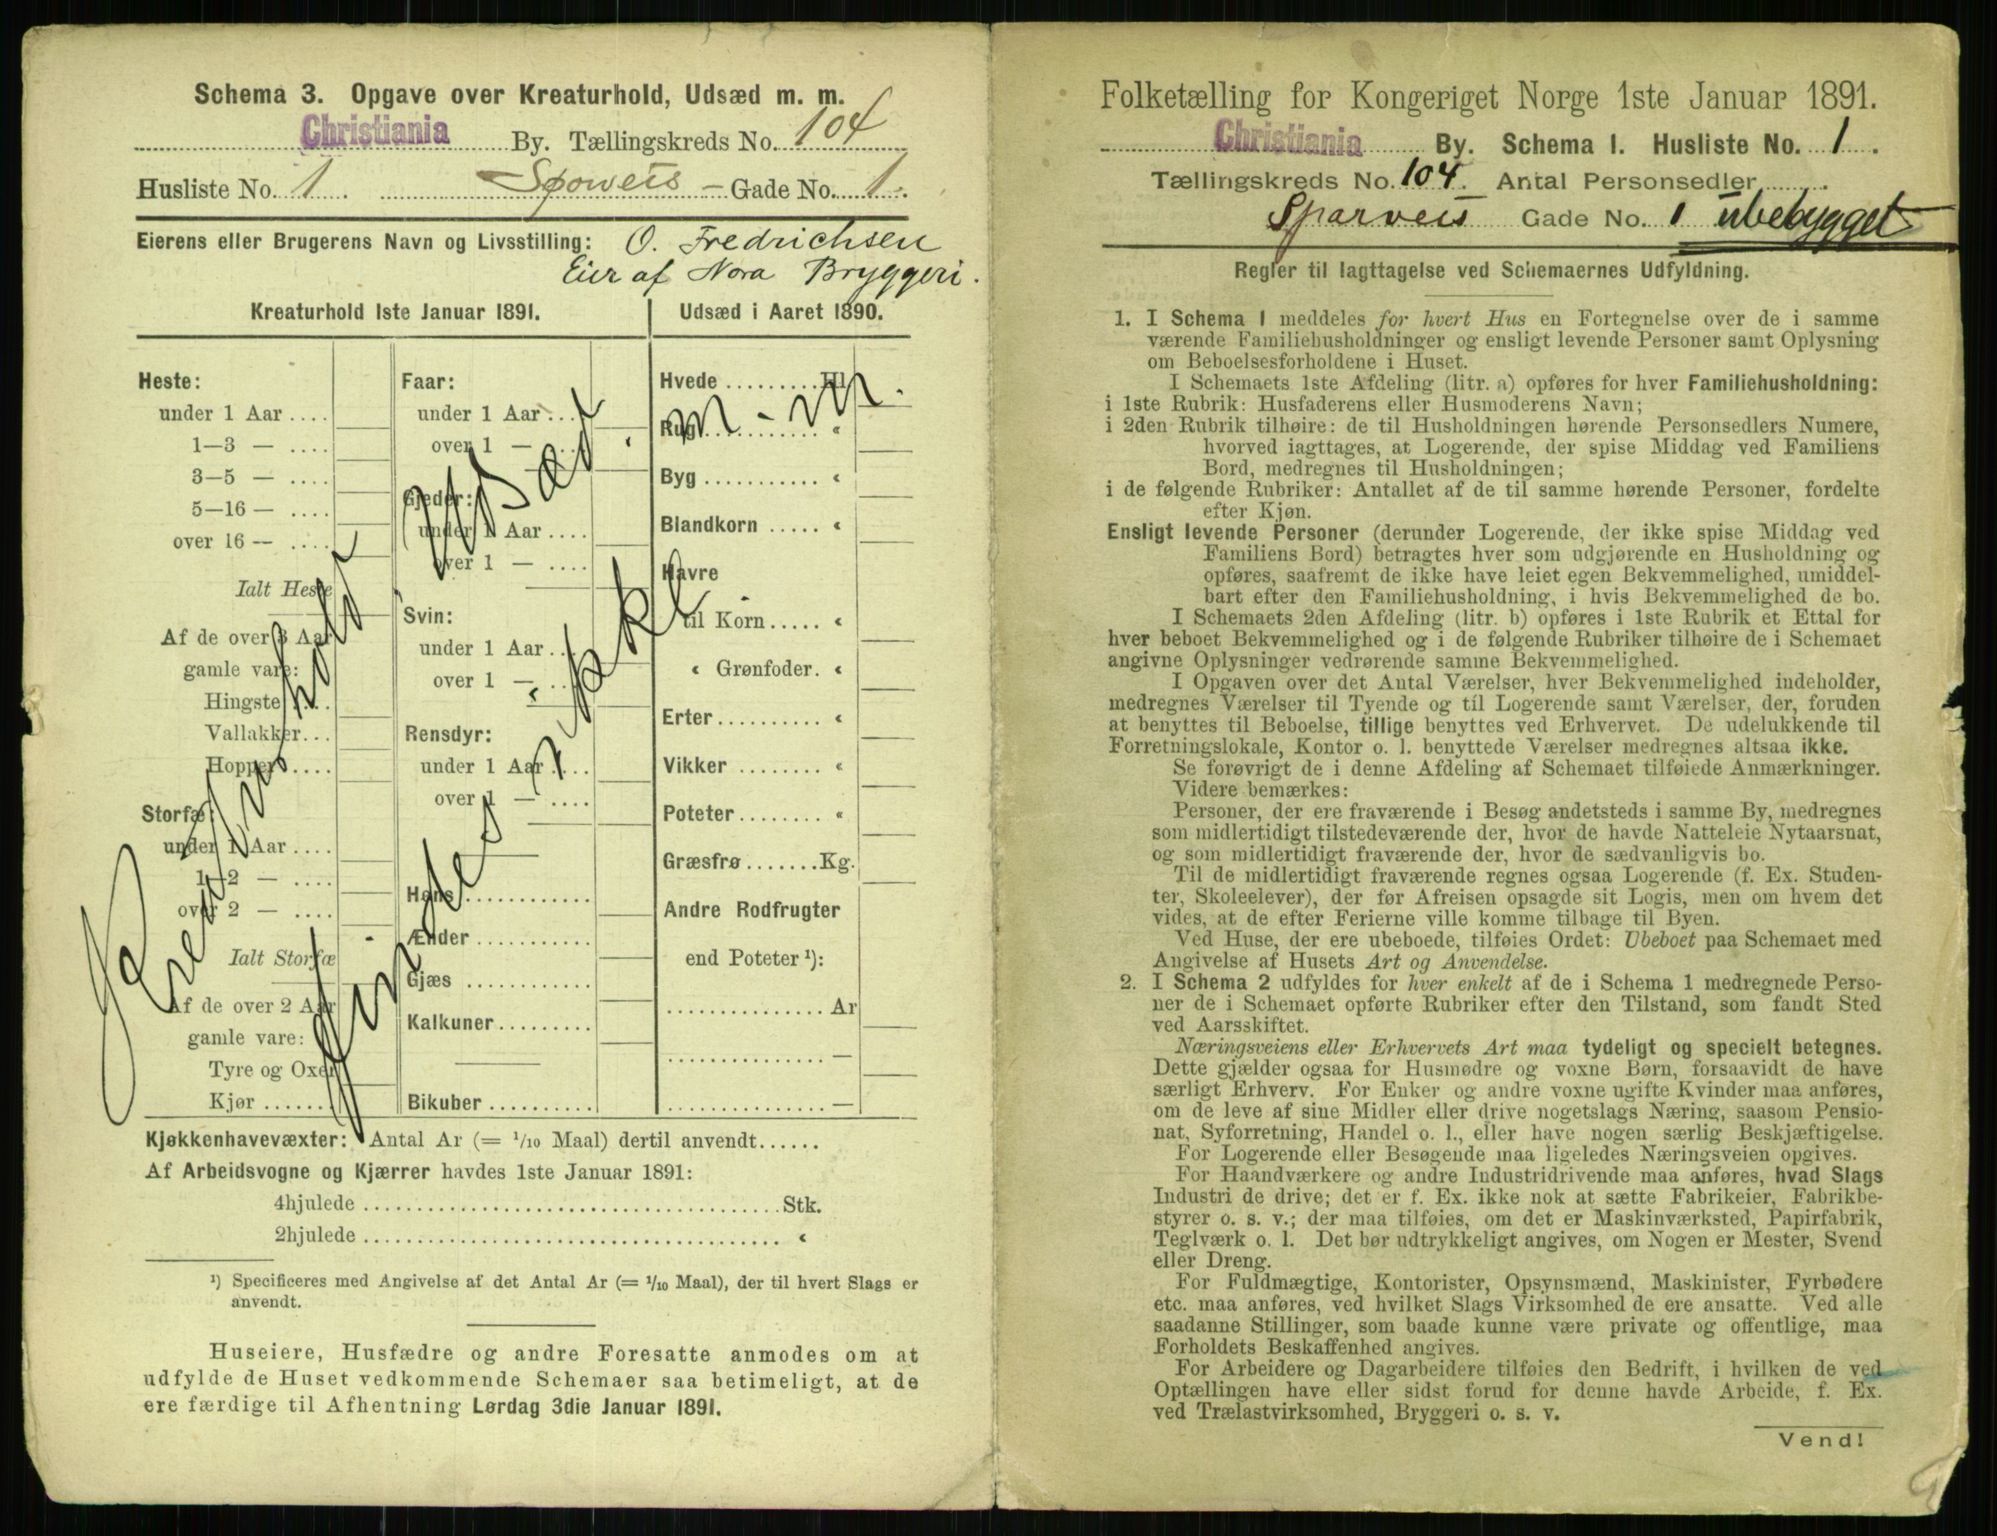 Schema 3. Opgave over Kreaturhold, Udsæd m. m.
Christiania By. Tællingskreds No. 104
Husliste No. 1. Sporveis - Gade No. 1.
Eierens eller Brugerens Navn og Livsstilling: O. Fredrichsen
Eier af Nora Bryggeri.
Kreaturhold 1ste Januar 1891.
Heste:
under 1 Aar ....
1—3 — ....
3—5 — ....
5—16 — ....
over 16 — ....
Ialt Heste
Af de over 3 Aar
gamle vare:
Hingste ....
Vallakker...
Hopper ....
Storfæ:
under 1 Aar ....
1—2 — ....
over 2 — ....
Ialt Storfæ
Af de over 2 Aar
gamle vare:
Tyre og Oxer
Kjør .......
Faar:
under 1 Aar ....
over 1 — ....
Gjeder:
under 1 Aar ....
over 1 — ....
Svin:
under 1 Aar ....
over 1 — ....
Rensdyr:
under 1 Aar ....
over 1 — ....
Høns ............
Ænder ...........
Gjæs ............
Kalkuner .........
Bikuber ..........
Udsæd i Aaret 1890.
Hvede ......... Hl.
Rug ............ «
Byg ............ «
Blandkorn ...... «
Havre
til Korn ..... «
« Grønfoder. «
Erter .......... «
Vikker ........ «
Poteter ........ «
Græsfrø ....... Kg.
Andre Rodfrugter
end Poteter ¹):
............... Ar
............... —
............... —
Kreaturhold, Udsæd m-m.
findes ikke
Kjøkkenhavevæxter: Antal Ar (= 1/10 Maal) dertil anvendt......
Af Arbeidsvogne og Kjærrer havdes 1ste Januar 1891:
4hjulede ........................................ Stk.
2hjulede ........................................ «
¹) Specificeres med Angivelse af det Antal Ar (= 1/10 Maal), der til hvert Slags er
anvendt.
Huseiere, Husfædre og andre Foresatte anmodes om at
udfylde de Huset vedkommende Schemaer saa betimeligt, at de
ere færdige til Afhentning Lørdag 3die Januar 1891.
Folketælling for Kongeriget Norge 1ste Januar 1891.
Christiania By. Schema I. Husliste No. 1.
Tællingskreds No. 104. Antal Personsedler .......
Sparveis Gade No. 1 ubebygget
Regler til Iagttagelse ved Schemaernes Udfyldning.
1. I Schema 1 meddeles for hvert Hus en Fortegnelse over de i samme
værende Familiehusholdninger og ensligt levende Personer samt Oplysning
om Beboelsesforholdene i Huset.
I Schemaets 1ste Afdeling (litr. a) opføres for hver Familiehusholdning:
i 1ste Rubrik: Husfaderens eller Husmoderens Navn;
i 2den Rubrik tilhøire: de til Husholdningen hørende Personsedlers Numere,
hvorved iagttages, at Logerende, der spise Middag ved Familiens
Bord, medregnes til Husholdningen;
i de følgende Rubriker: Antallet af de til samme hørende Personer, fordelte
efter Kjøn.
Ensligt levende Personer (derunder Logerende, der ikke spise Middag ved
Familiens Bord) betragtes hver som udgjørende en Husholdning og
opføres, saafremt de ikke have leiet egen Bekvemmelighed, umiddel-
bart efter den Familiehusholdning, i hvis Bekvemmelighed de bo.
I Schemaets 2den Afdeling (litr. b) opføres i 1ste Rubrik et Ettal for
hver beboet Bekvemmelighed og i de følgende Rubriker tilhøire de i Schemaet
angivne Oplysninger vedrørende samme Bekvemmelighed.
I Opgaven over det Antal Værelser, hver Bekvemmelighed indeholder,
medregnes Værelser til Tyende og til Logerende samt Værelser, der, foruden
at benyttes til Beboelse, tillige benyttes ved Erhvervet. De udelukkende til
Forretningslokale, Kontor o. l. benyttede Værelser medregnes altsaa ikke.
Se forøvrigt de i denne Afdeling af Schemaet tilføiede Anmærkninger.
Videre bemærkes:
Personer, der ere fraværende i Besøg andetsteds i samme By, medregnes
som midlertidigt tilstedeværende der, hvor de havde Natteleie Nytaarsnat,
og som midlertidigt fraværende der, hvor de sædvanligvis bo.
Til de midlertidigt fraværende regnes ogsaa Logerende (f. Ex. Studen-
ter, Skoleelever), der før Afreisen opsagde sit Logis, men om hvem det
vides, at de efter Ferierne ville komme tilbage til Byen.
Ved Huse, der ere ubeboede, tilføies Ordet: Ubeboet paa Schemaet med
Angivelse af Husets Art og Anvendelse.
2. I Schema 2 udfyldes for hver enkelt af de i Schema 1 medregnede Perso-
ner de i Schemaet opførte Rubriker efter den Tilstand, som fandt Sted
ved Aarsskiftet.
Næringsveiens eller Erhvervets Art maa tydeligt og specielt betegnes.
Dette gjælder ogsaa for Husmødre og voxne Børn, forsaavidt de have
særligt Erhverv. For Enker og andre voxne ugifte Kvinder maa anføres,
om de leve af sine Midler eller drive nogetslags Næring, saasom Pensio-
nat, Syforretning, Handel o. l., eller have nogen særlig Beskjæftigelse.
For Logerende eller Besøgende maa ligeledes Næringsveien opgives.
For Haandværkere og andre Industridrivende maa anføres, hvad Slags
Industri de drive; det er f. Ex. ikke nok at sætte Fabrikeier, Fabrikbe-
styrer o. s. v.; der maa tilføies, om det er Maskinværksted, Papirfabrik,
Teglværk o. l. Det bør udtrykkeligt angives, om Nogen er Mester, Svend
eller Dreng.
For Fuldmægtige, Kontorister, Opsynsmænd, Maskinister, Fyrbødere
etc. maa anføres, ved hvilket Slags Virksomhed de ere ansatte. Ved alle
saadanne Stillinger, som baade kunne være private og offentlige, maa
Forholdets Beskaffenhed angives.
For Arbeidere og Dagarbeidere tilføies den Bedrift, i hvilken de ved
Optællingen have eller sidst forud for denne havde Arbeide, f. Ex.
ved Trælastvirksomhed, Bryggeri o. s. v.
Vend!